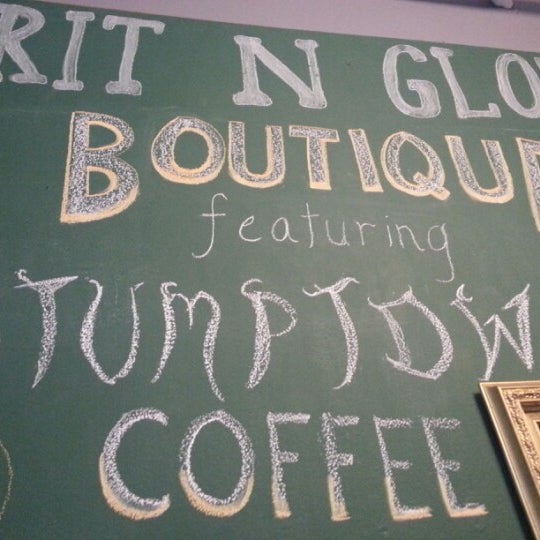 RIT N GLO
BOUTIQUE
featuring
TUMPTOW
COFFEE